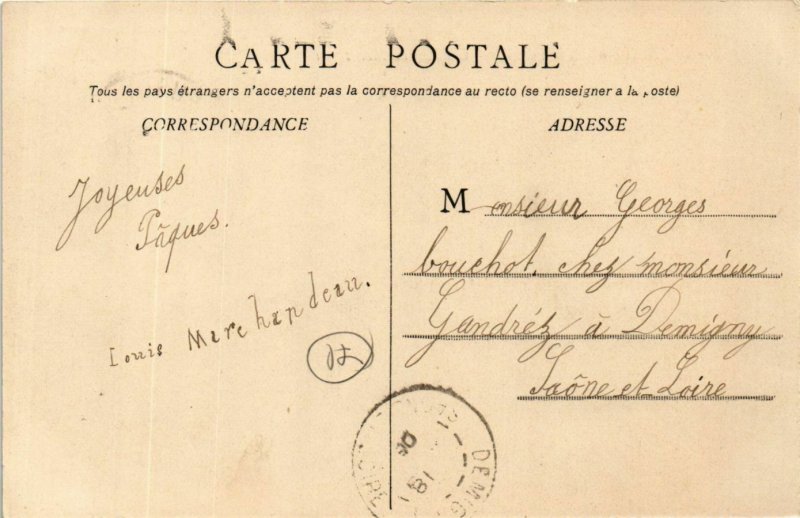 CARTE POSTALE
Tous les pays étrangers n'acceptent pas la correspondance au recto (se renseigner a la poste)
CORRESPONDANCE
Joyeuses
Pâques.
Louis Marchandeau.
ADRESSE
Monsieur Georges
bouchot. chez monsieur
Gandréz à Demigny
Saône et Loire